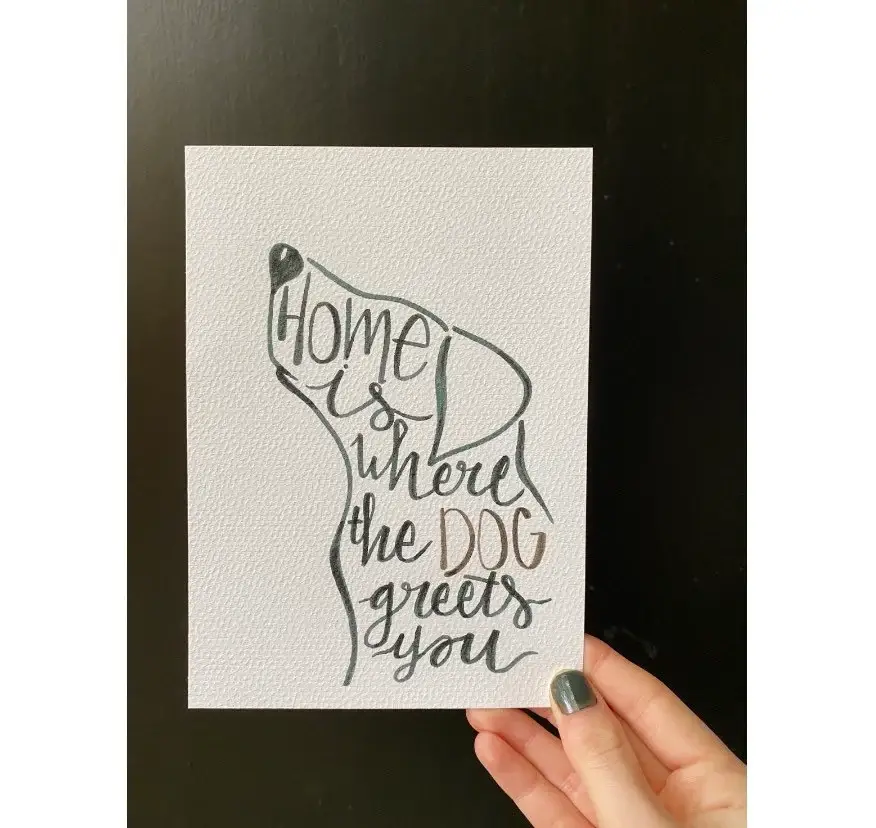 HOME
is
where
the DOG
greets
you